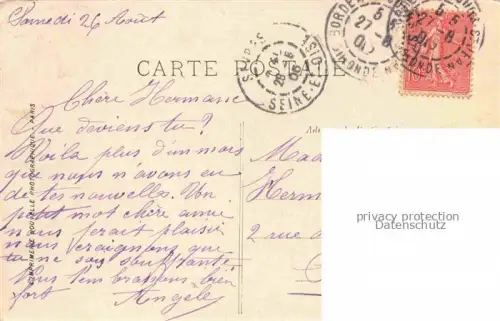 Samedi 26 Août
CARTE POSTALE
Chère Hermanie
Que deviens tu ?
Voila plus d'un mois
que nous n'avons eu
de tes nouvelles. Un
petit mot chère amie
nous ferait plaisir
nous craignons que
tu ne sois souffrante
Nous t'embrassons bien
fort Angèle
Mad
Herm
2 rue
IMPRIMERIE NOUVELLE PHOTOGRAPHIQUE PARIS
SEINE-ET
BORDE
GIRONDE
5
27
8
privacy protection
Datenschutz